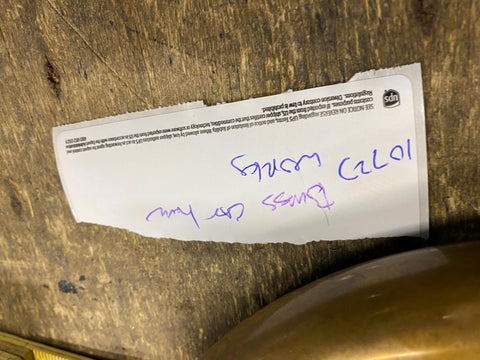 Brass car horn
works
ups
SEE NOTICE ON REVERSE regarding UPS Terms, and notice of limitation of liability. Where allowed by law, shipper authorizes UPS to act as forwarding agent for export control and
customs purposes. If exported from the US, shipper certifies that the commodities, technology or software were exported from the US in accordance with the Export Administration
Regulations. Diversion contrary to law is prohibited.